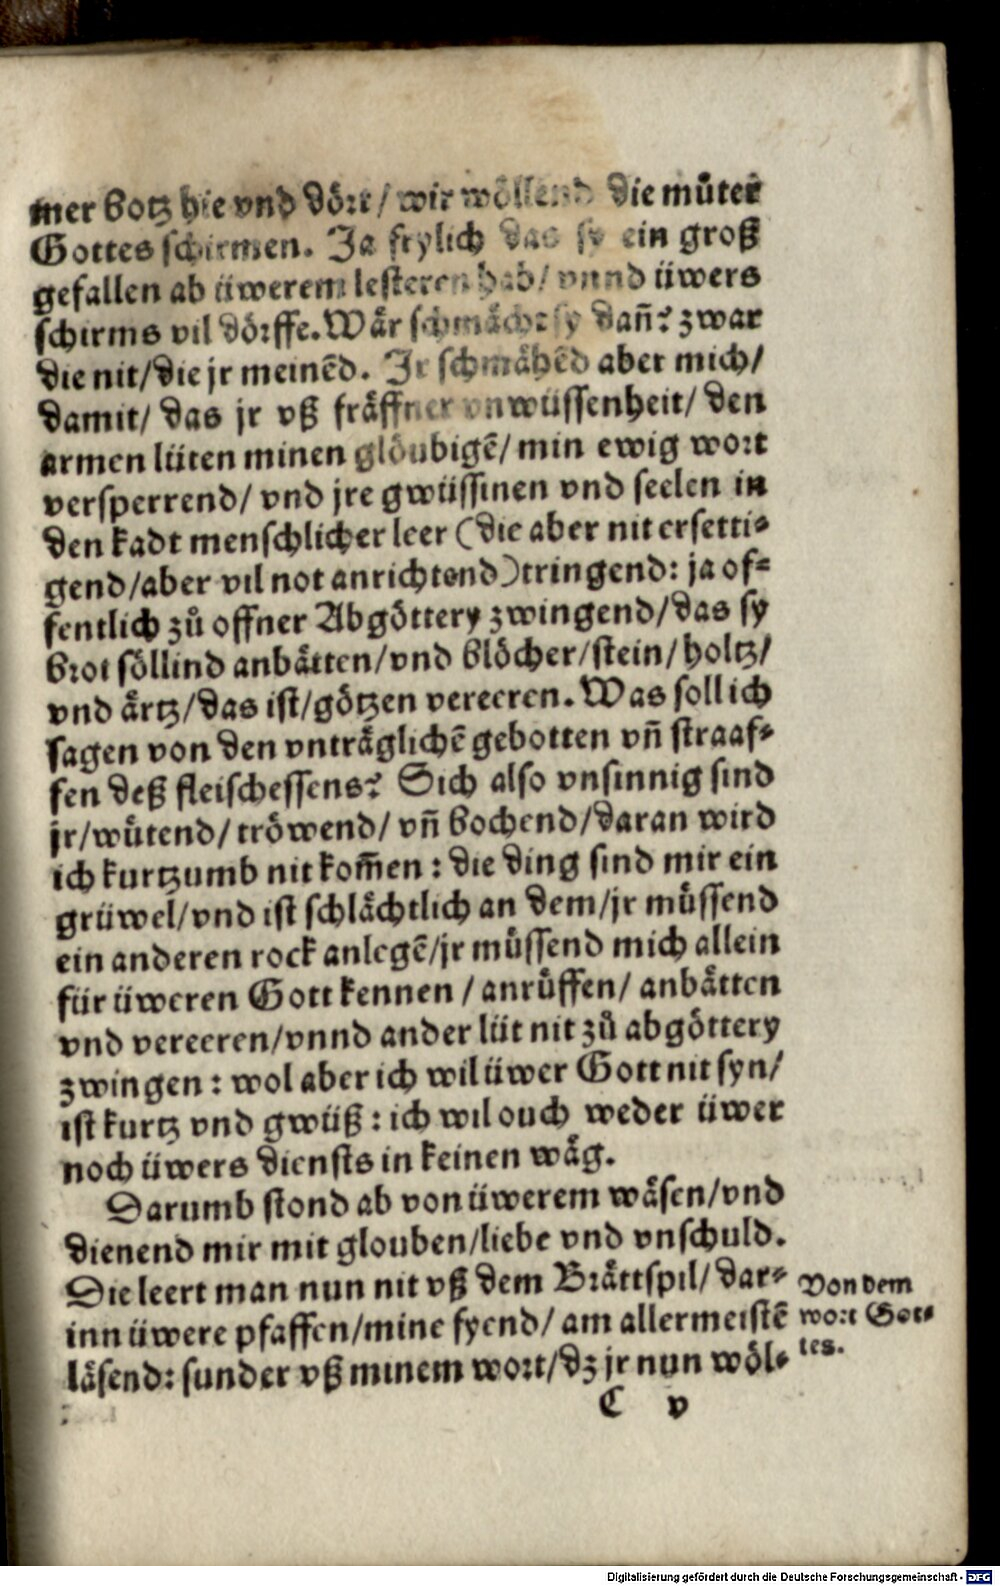 mer botz hie vnd dört/ wir wöllend die můter
Gottes schirmen. Ja frylich das sy ein groß
gefallen ab üwerem lesteren hab/ vnnd üwers
schirms vil dörffe. Wår schmächt sy dañ? zwar
die nit/ die jr meinēd. Jr schmåhēd aber mich/
damit/ das jr vß fråffner vnwüssenheit/ den
armen lüten minen glöubigē/ min ewig wort
versperrend/ vnd jre gwüssinen vnd seelen in
den kadt menschlicher leer (die aber nit ersetti⸗
gend/ aber vil not anrichtend) tringend: ja of⸗
fentlich zů offner Abgöttery zwingend/ das sy
brot söllind anbåtten/ vnd blöcher/ stein/ holtz/
vnd årtz/ das ist/ götzen vereeren. Was soll ich
sagen von den vntråglichē gebotten vñ straaf⸗
fen deß fleischessens? Sich also vnsinnig sind
jr/ wütend/ tröwend/ vñ bochend/ daran wird
ich kurtzumb nit kom̃en: die ding sind mir ein
grüwel/ vnd ist schlåchtlich an dem/ jr müssend
ein anderen rock anlegē/ jr müssend mich allein
für üweren Gott kennen/ anrůffen/ anbåtten
vnd vereeren/ vnnd ander lüt nit zů abgöttery
zwingen: wol aber ich wil üwer Gott nit syn/
ist kurtz vnd gwüß: ich wil ouch weder üwer
noch üwers diensts in keinen wåg.
Darumb stond ab von üwerem wåsen/ vnd
dienend mir mit glouben/ liebe vnd vnschuld.
Die leert man nun nit vß dem Bråttspil/ dar⸗
inn üwere pfaffen/ mine fyend/ am allermeistē
låsend: sunder vß minem wort/ dz jr nun wöl⸗
Von dem
wort Got⸗
tes.
C v
Digitalisierung gefördert durch die Deutsche Forschungsgemeinschaft - DFG